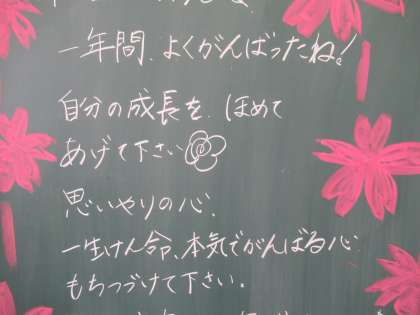 一年間、よくがんばったね!
自分の成長を、ほめて
あげて下さい
思いやりの心、
一生けん命、本気でがんばる心
もちつづけて下さい。